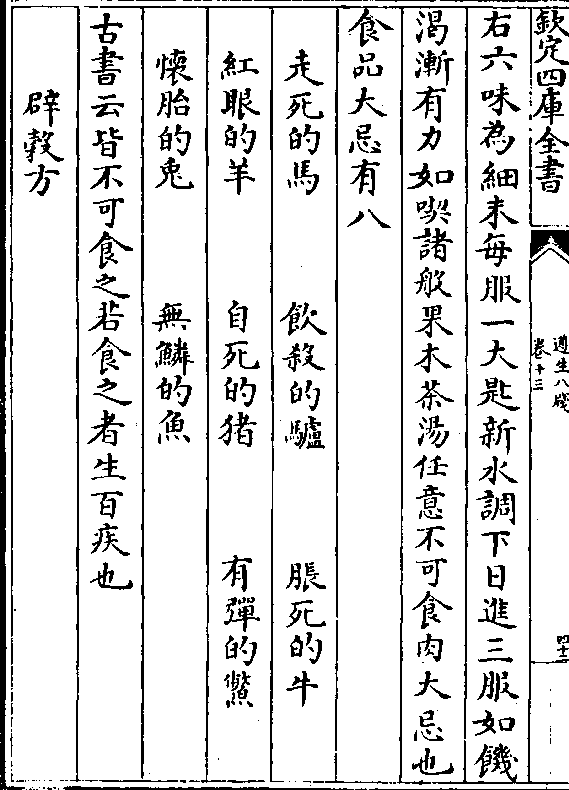 欽定四庫全書
遵生八牋
卷十三
四十二
右六味為細末每服一大匙新水調下日進三服如饑
渴漸有力如喫諸般果木茶湯任意不可食肉大忌也
食品大忌有八
走死的馬 飲殺的驢 脹死的牛
紅眼的羊 自死的猪 有彈的鱉
懷胎的兎 無鱗的魚
古書云皆不可食之若食之者生百疾也
辟穀方